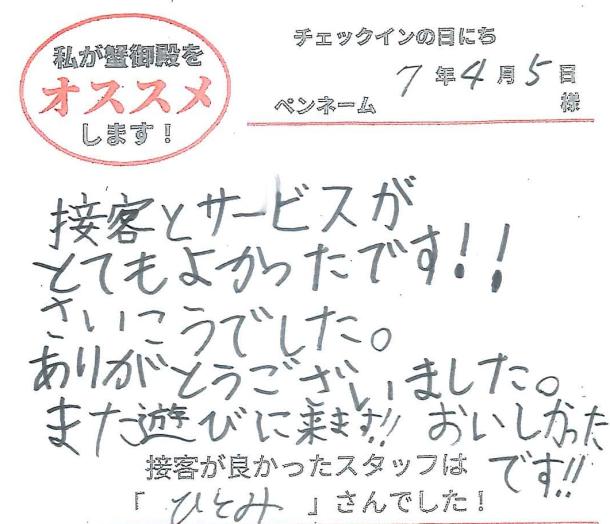 私が蟹御殿を
オススメ
します!
チェックインの日にち
7年4月5日
ペンネーム 様
接客とサービスが
とてもよかったです!!
さいこうでした。
ありがとうございました。
また遊びに来ます!! おいしかった
です!!
接客が良かったスタッフは
「 ひとみ 」さんでした!